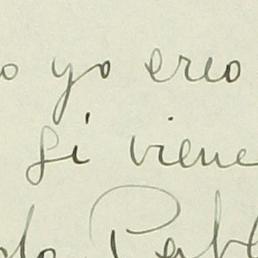 o yo creo
si viene
do Pabl